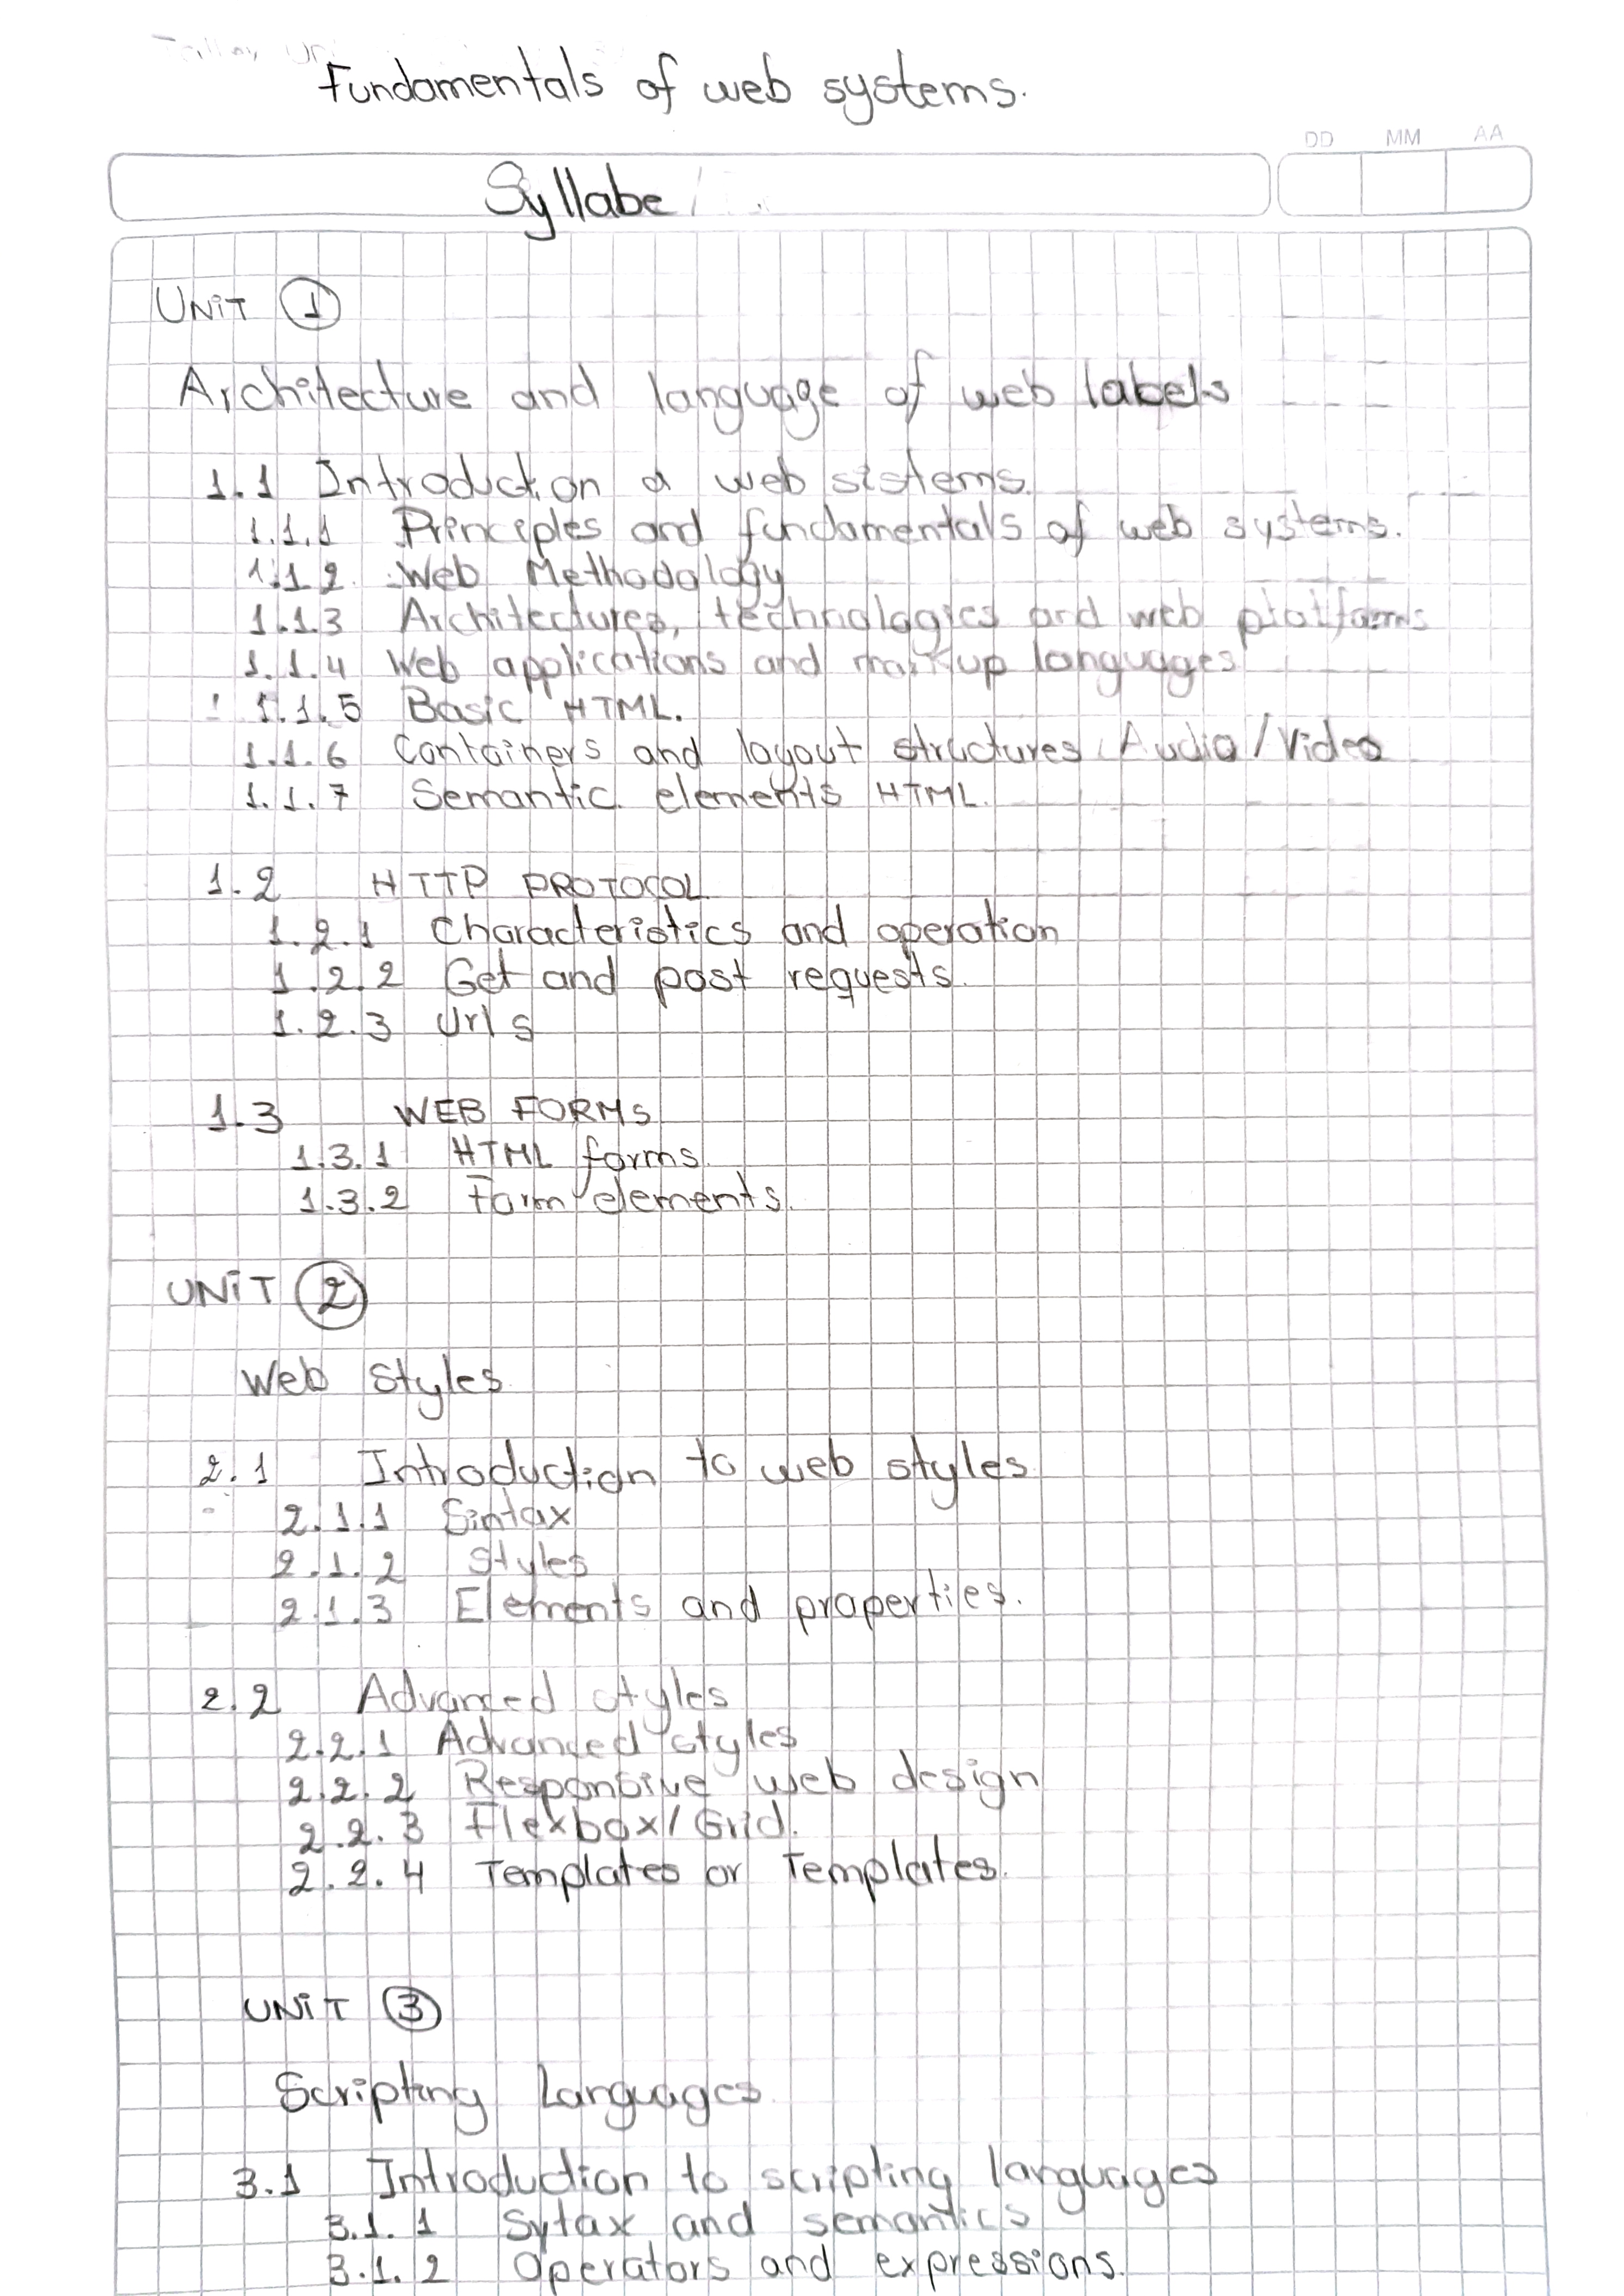 Fundamentals of web systems.
DD MM AA
Syllabe
UNIT 1
Architecture and language of web labels
1.1 Introduction a web sistems.
1.1.1 Principles and fundamentals of web systems.
1.1.2 Web Methodology
1.1.3 Architectures, technologies and web platforms
1.1.4 Web applications and markup languages
1.1.5 Basic HTML.
1.1.6 Containers and layout structures Audio/Video
1.1.7 Semantic elements HTML.
1.2 HTTP PROTOCOL
1.2.1 Characteristics and operation
1.2.2 Get and post requests.
1.2.3 Urls
1.3 WEB FORMS
1.3.1 HTML forms.
1.3.2 Form elements.
UNIT 2
Web Styles
2.1 Introduction to web styles.
2.1.1 Sintax
2.1.2 Styles
2.1.3 Elements and properties.
2.2 Advanced styles
2.2.1 Advanced styles
2.2.2 Responsive web design
2.2.3 Flexbox/Grid.
2.2.4 Templates or Templates.
UNIT 3
Scripting Languages.
3.1 Introduction to scripting languages
3.1.1 Sytax and semantics
3.1.2 Operators and expressions.